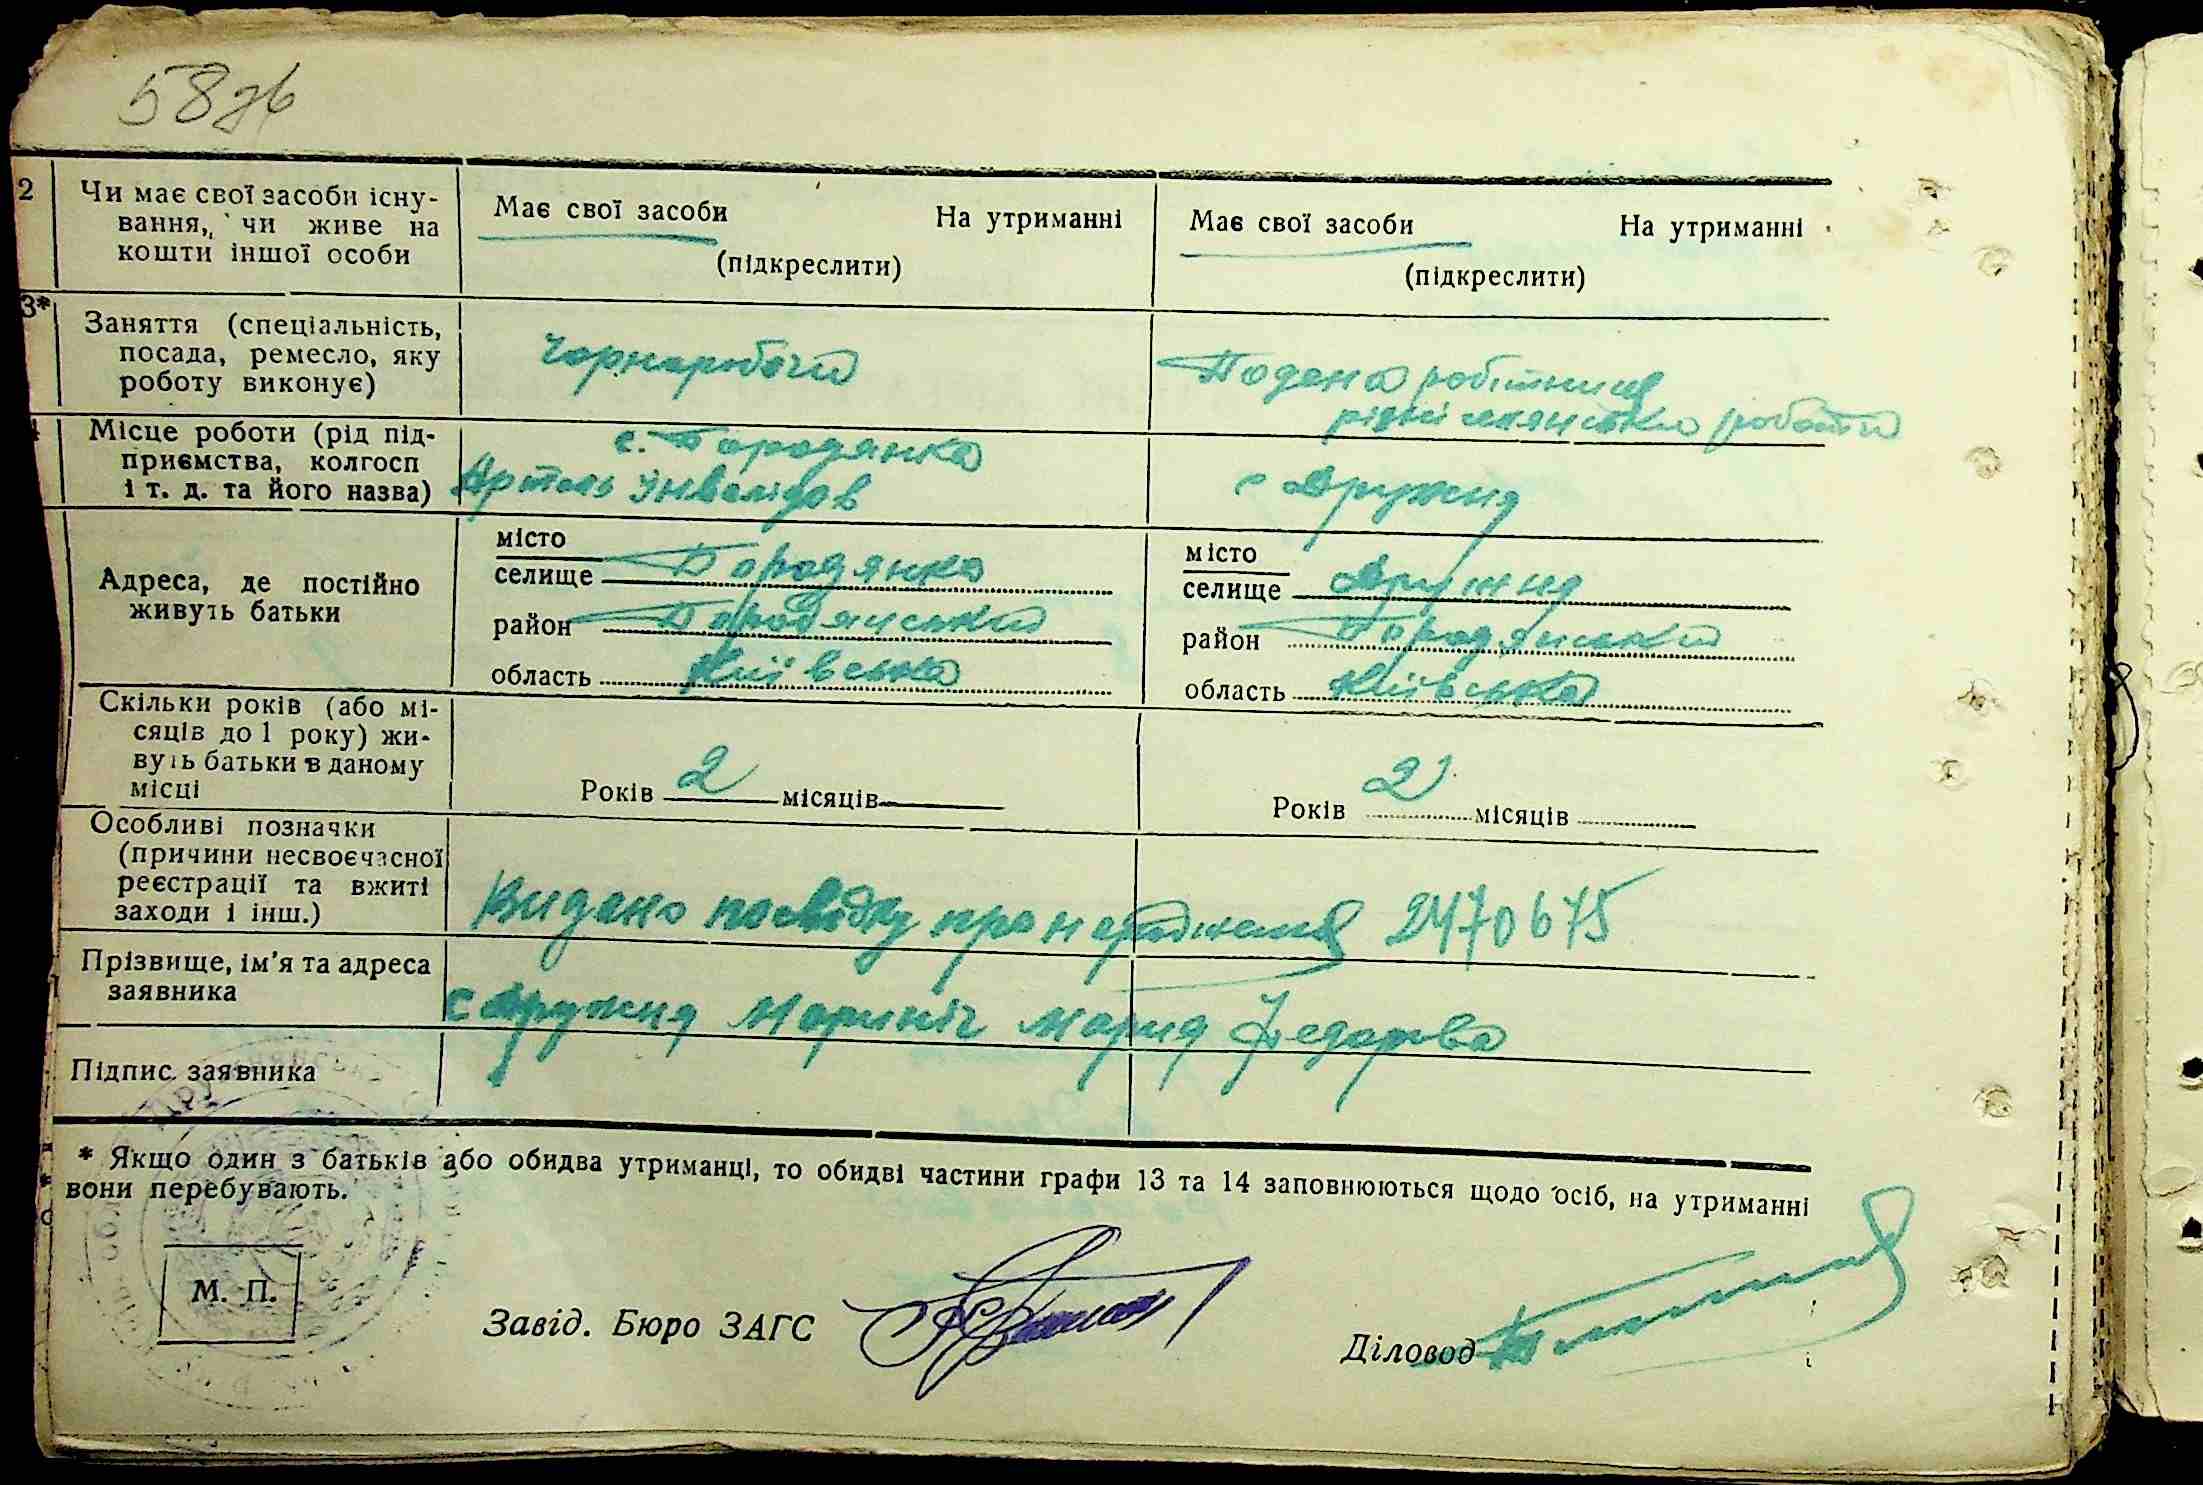 58зв
2 Чи має свої засоби існу-
вання, чи живе на
кошти іншої особи
Має свої засоби На утриманні
(підкреслити)
Має свої засоби На утриманні
(підкреслити)
3* Заняття (спеціальність,
посада, ремесло, яку
роботу виконує)
Чорноробочий
Подена робітниця
різні селянські роботи
Місце роботи (рід під-
приємства, колгосп
і т. д. та його назва)
с. Бородянка
Артель Інвалідов
с Дружня
Адреса, де постійно
живуть батьки
місто
селище Бородянка
район Бородянський
область Київська
місто
селище Дружня
район Бородянський
область Київська
Скільки років (або мі-
сяців до 1 року) жи-
вуть батьки в даному
місці
Років 2 місяців
Років 2 місяців
Особливі позначки
(причини несвоєчасної
реєстрації та вжиті
заходи і інш.)
Видано посвідку про народження 2470675
Прізвище, ім'я та адреса
заявника
с Дружня Мариніч Мария Федорова
Підпис заявника
* Якщо один з батьків або обидва утриманці, то обидві частини графи 13 та 14 заповнюються щодо осіб, на утриманні
вони перебувають.
М. П.
Завід. Бюро ЗАГС
Діловод